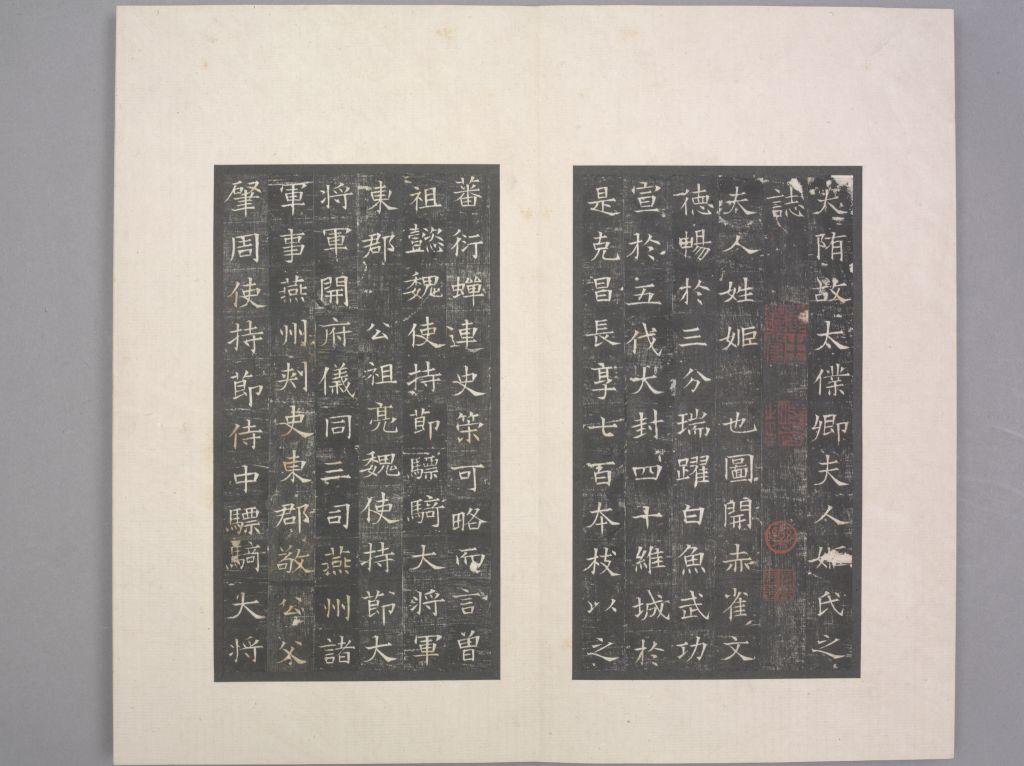 大隋故太僕卿夫人姬氏之
誌
夫人姓姬 也圖開赤雀文
徳暢於三分瑞躍白魚武功
宣於五伐大封四十維城於
是克昌長享七百本枝以之
蕃衍蟬連史策可略而言曾
祖懿魏使持節驃騎大將軍
東郡 公祖亮魏使持節大
将軍開府儀同三司燕州諸
軍事燕州刺史東郡敬公父
肇周使持節侍中驃騎大将